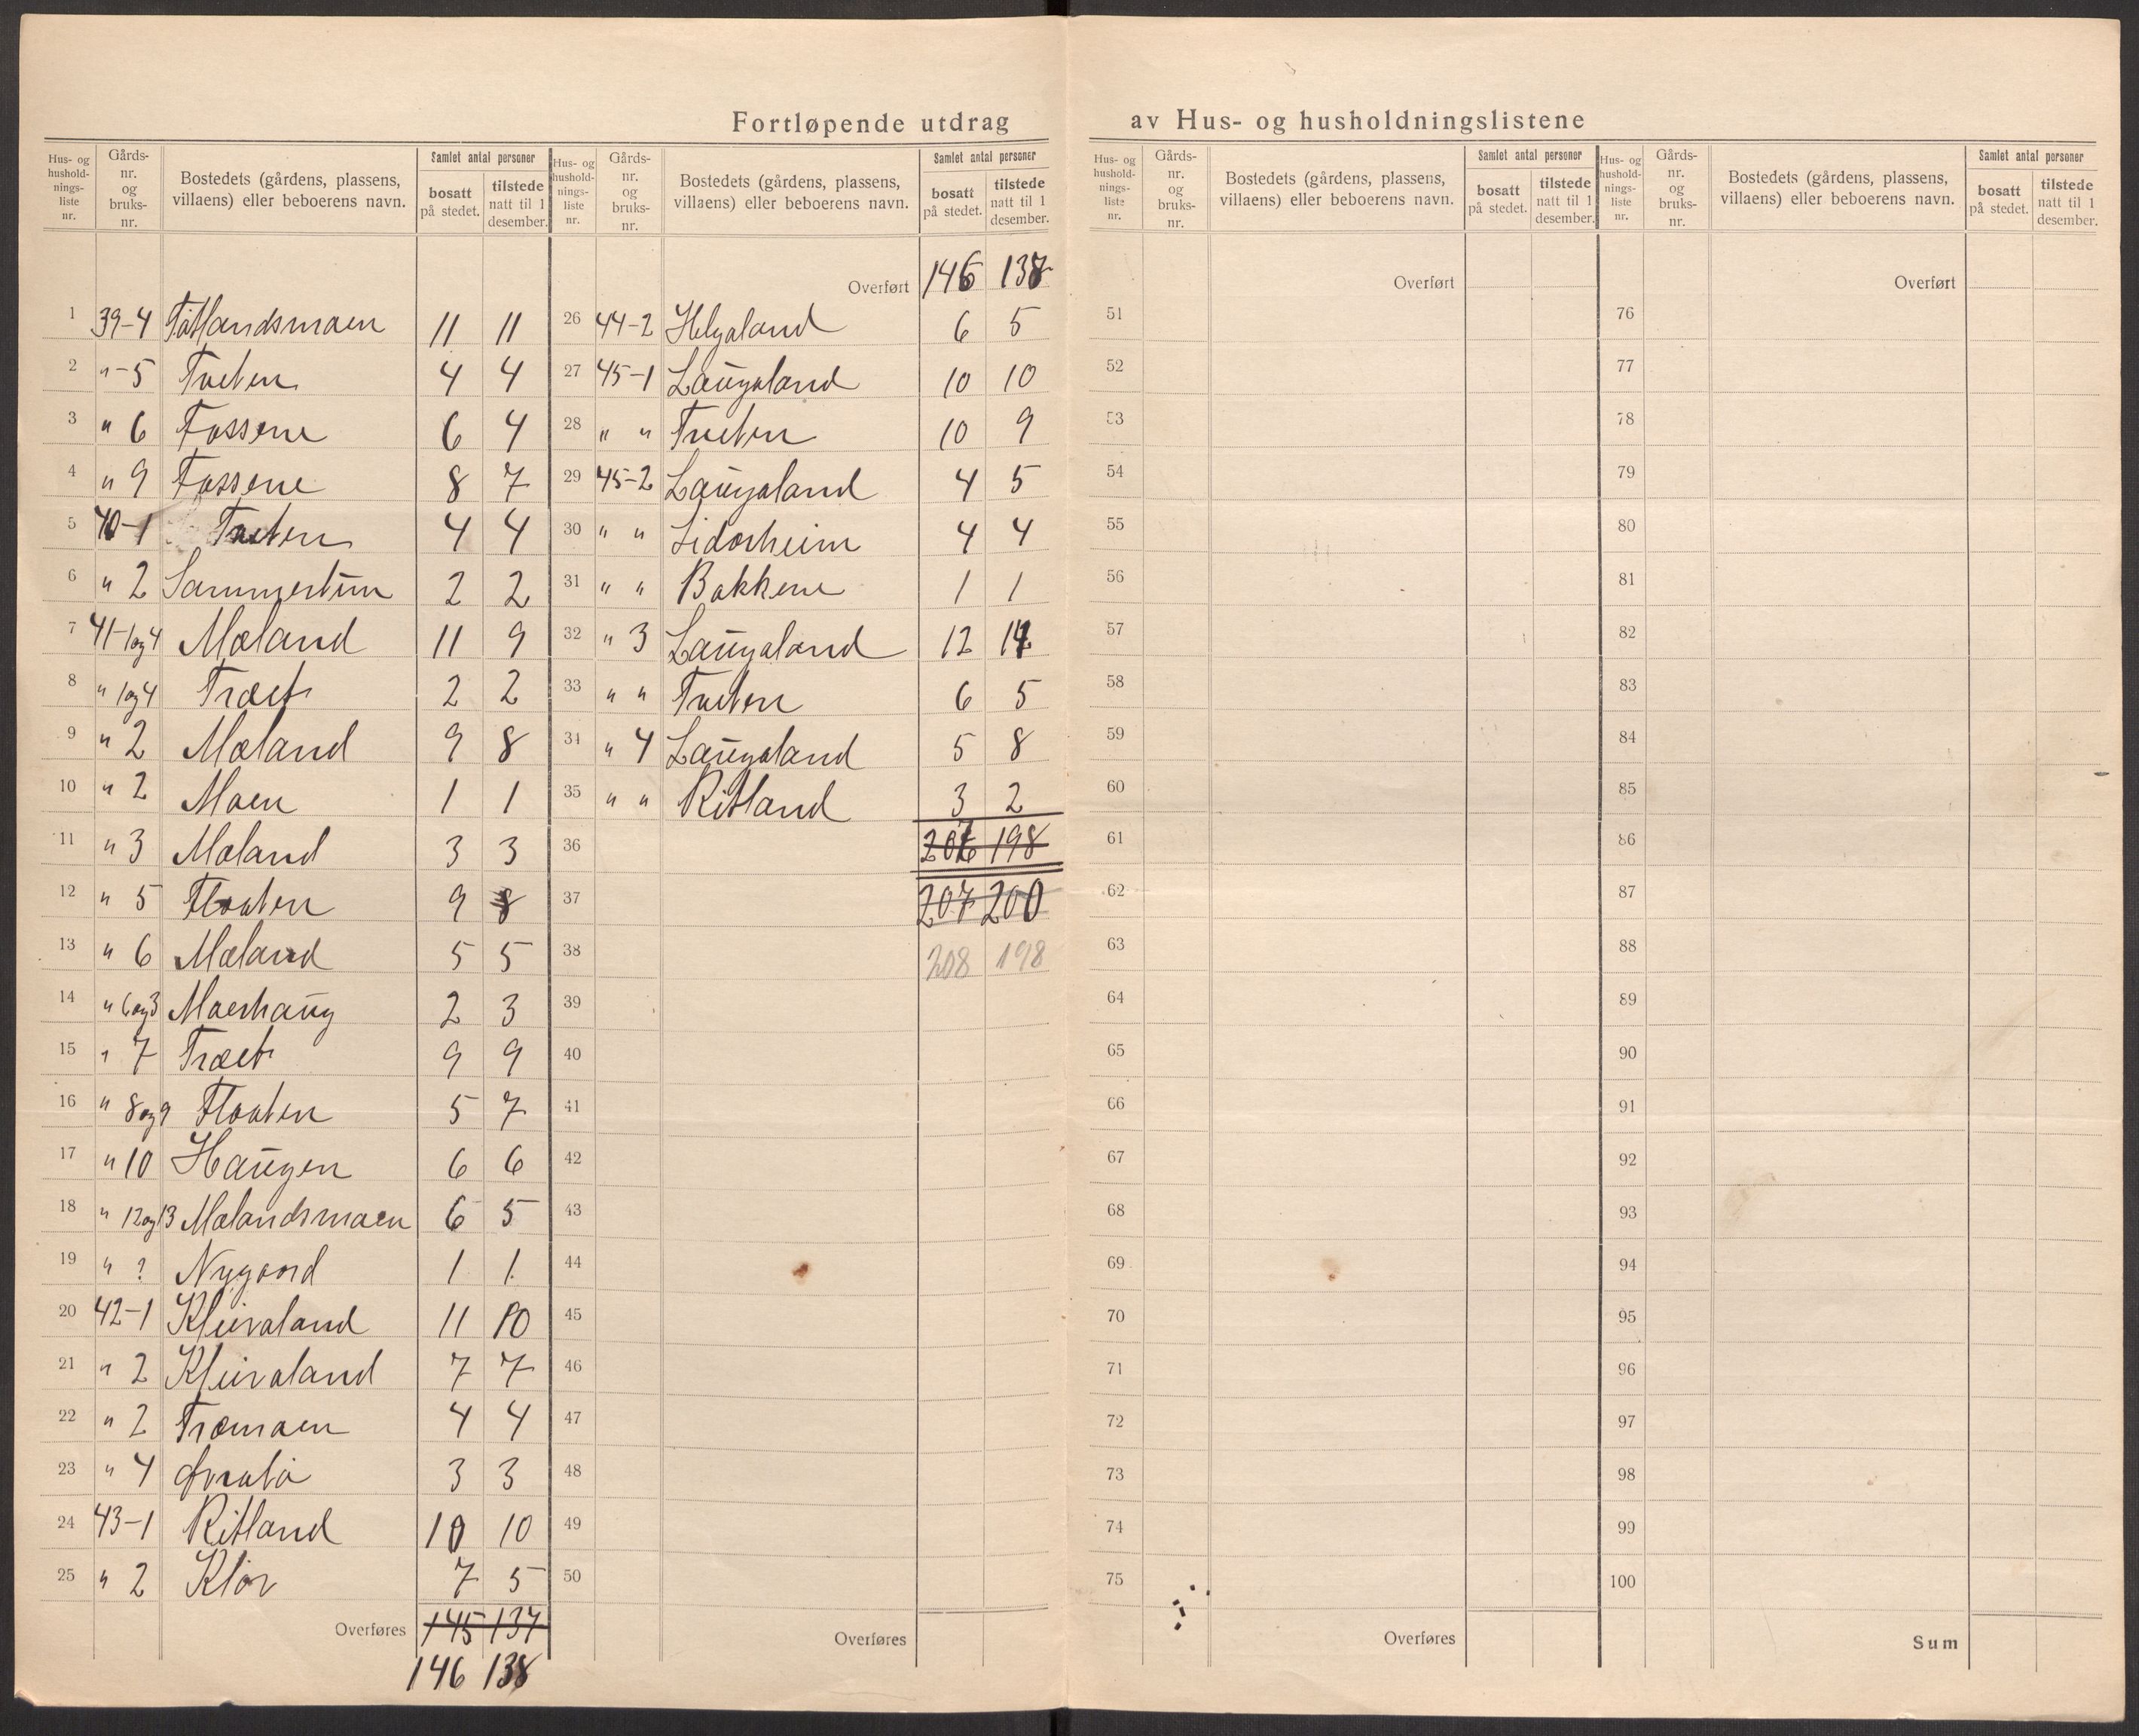 Fortløpende utdrag av Hus- og husholdningslistene
Hus- og husholdningsliste nr. | Gårdsnr. og bruksnr. | Bostedets (gårdens, plassens, villaens) eller beboerens navn. | Samlet antal personer bosatt på stedet. | tilstede natt til 1 desember.
1 39-4 Tøtlandsmoen 11 11
2 " -5 Tveten 4 4
3 " 6 Fossene 6 4
4 " 9 Fossene 8 7
5 40-1 Tveten 4 4
6 " 2 Sammertun 2 2
7 41-1og4 Mæland 11 9
8 " 1og4 Træet 2 2
9 " 2 Mæland 9 8
10 " 2 Moen 1 1
11 " 3 Mæland 3 3
12 " 5 Floaten 9 8
13 " 6 Mæland 5 5
14 " 6og3 Moerhaug 2 3
15 " 7 Træet 9 9
16 " 8og9 Floaten 5 7
17 " 10 Haugen 6 6
18 " 12og13 Mælandsmoen 6 5
19 " ? Nygaard 1 1
20 42-1 Kleivaland 11 10
21 " 2 Kleivaland 7 7
22 " 2 Træmoen 4 4
23 " 4 3 3
24 43-1 Ritland 10 10
25 " 2 7 5
Overføres 145 137
146 138
Hus- og husholdningsliste nr. | Gårdsnr. og bruksnr. | Bostedets (gårdens, plassens, villaens) eller beboerens navn. | Samlet antal personer bosatt på stedet. | tilstede natt til 1 desember.
Overført 146 138
26 44-2 Helgaland 6 5
27 45-1 Laugaland 10 10
28 " " Tveten 10 9
29 45-2 Laugaland 4 5
30 " " Lidarheim 4 4
31 " " Bakkene 1 1
32 " 3 Laugaland 12 11
33 " " Tveten 6 5
34 " 4 Laugaland 5 8
35 " " Ritland 3 2
36 207 198
37 207 200
38 208 198
39
40
41
42
43
44
45
46
47
48
49
50
Overføres
Hus- og husholdningsliste nr. | Gårdsnr. og bruksnr. | Bostedets (gårdens, plassens, villaens) eller beboerens navn. | Samlet antal personer bosatt på stedet. | tilstede natt til 1 desember.
Overført
51
52
53
54
55
56
57
58
59
60
61
62
63
64
65
66
67
68
69
70
71
72
73
74
75
Overføres
Hus- og husholdningsliste nr. | Gårdsnr. og bruksnr. | Bostedets (gårdens, plassens, villaens) eller beboerens navn. | Samlet antal personer bosatt på stedet. | tilstede natt til 1 desember.
Overført
76
77
78
79
80
81
82
83
84
85
86
87
88
89
90
91
92
93
94
95
96
97
98
99
100
Sum